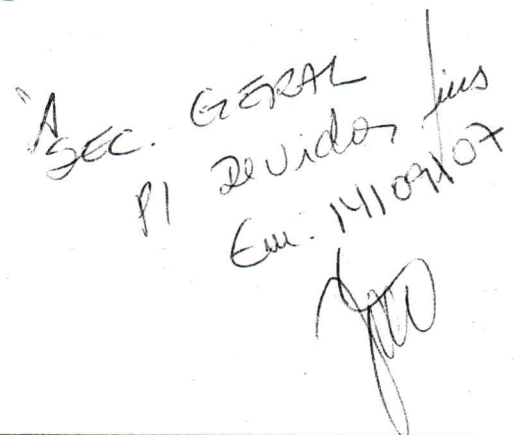 À
SEC. GERAL
P/ Devidos fins
Em: 14/09/07